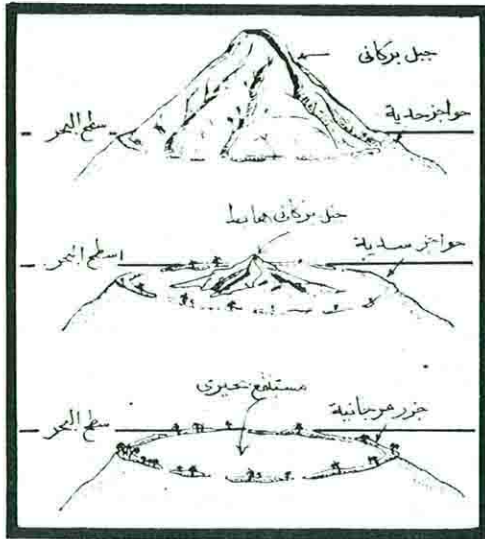 جبل بركانى
حواجز حدية
سطح البحر
جبل بركانى هابط
حواجز سدية
سطح البحر
مستنقع بحيرى
جزر مرجانية
سطح البحر